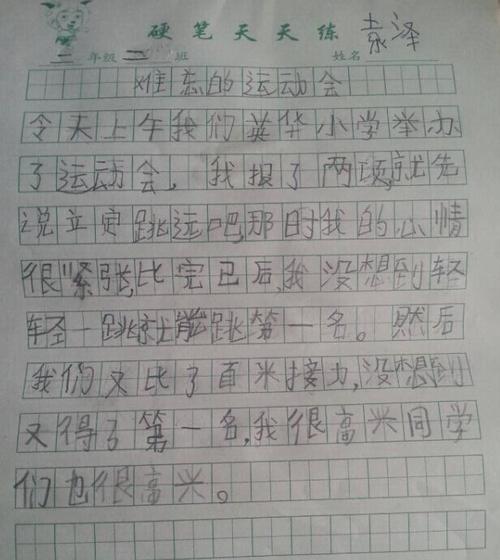 硬笔天天练
二年级二班 姓名 袁泽
难忘的运动会
今天上午我们英华小学举办
了运动会，我报了两项,就先
说立定跳远吧,那时我的心情
很紧张,比完已后,我没想到轻
轻一跳就能跳第一名。然后
我们又比了百米接力,没想到
又得了第一名,我很高兴同学
们也很高兴。